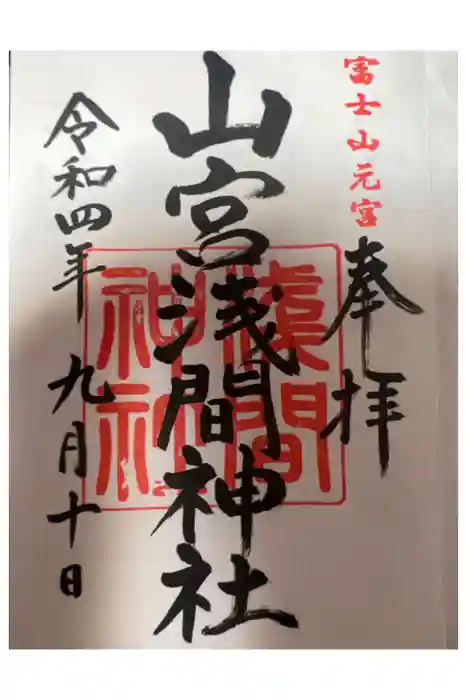 富士山元宮
奉拝
山宮浅間神社
浅間神社
令和四年九月十日